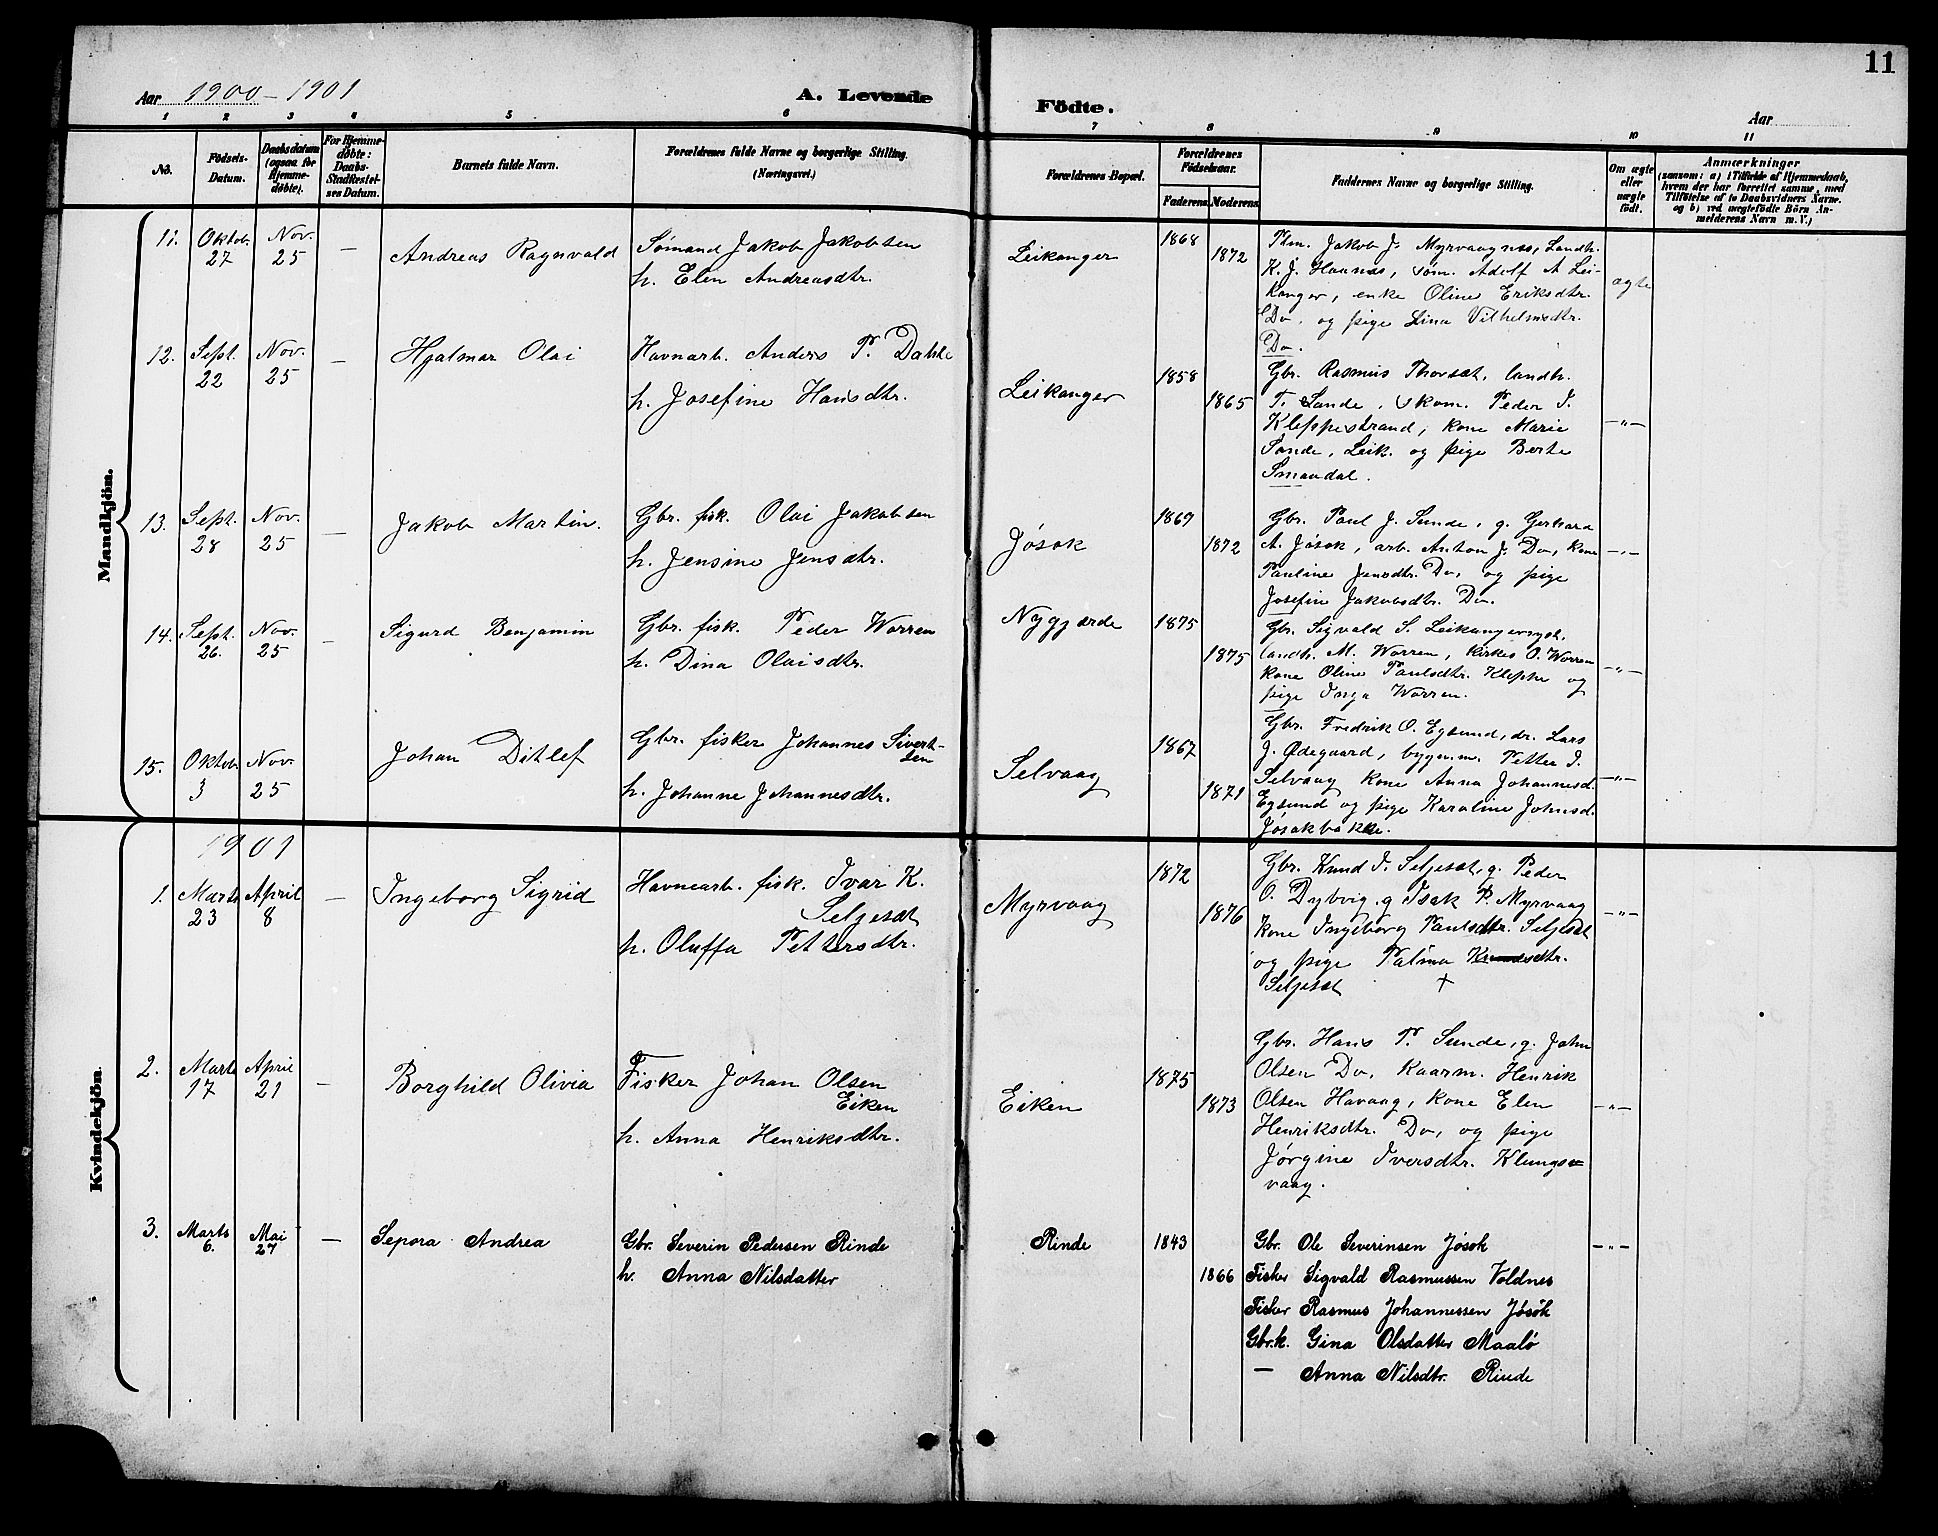 11
Aar 1900-1901
A. Levende Födte.
Aar
1 2 3 4 5 6 7 8 9 10 11
No. Födsels-Datum. Daabsdatum (ogsaa for Hjemmedøbte). For Hjemmedøbte: Daabs-Stadfæstelses Datum. Barnets fulde Navn. Forældrenes fulde Navne og borgerlige Stilling. (Næringsvei.) Forældrenes Bopæl. Forældrenes Födselsaar. Faderens Moderens Faddernes Navne og borgerlige Stilling. Om ægte eller uægte födt. Anmærkninger (saasom: a) i Tilfælde af Hjemmedaab, hvem der har forrettet samme, med Tilföielse af to Daabsvidners Navne. og b) ved uægtefödte Börn Anmelderens Navn m. V.)
Mandkjön.
11. Oktob. 27 Nov. 25 — Andreas Ragnvald
Sømand Jakob Jakobsen
h. Elen Andreasdtr.
Leikanger 1868 1872
Plm. Jakob J. Myrvaagnes, Landh.
K. J. Haanæs, søm. Adolf A Lei-
kanger, enke Oline Eriksdtr.
Do, og pige Lina Vilhelmsdtr.
Do.
ægte
12. Sept. 22 Nov. 25 — Hjalmar Olai
Havnarb. Anders P. Dahle
h. Josefine Hansdtr.
Leikanger 1858 1865
Gbr. Rasmus Thorsæt, landh.
T. Sande, skom. Peder I.
Kleppestrand, kone Marie
Sande, Leik. og pige Berte
Smaadal.
—"—
13. Sept. 28 Nov. 25 — Jakob Martin.
Gbr. fisk. Olai Jakobsen
h. Jensine Jensdtr.
Jøsok 1869 1872
Gbr. Paul J. Sunde, g. Gerhard
A. Jøsok, arb. Anton J. Do, kone
Pauline Jensdtr. Do, og pige
Josefine Jakobsdtr. Do.
—"—
14. Sept. 26. Nov. 25 — Sigurd Benjamin
Gbr. fisk. Peder Worren
h. Dina Olaisdtr.
Nygjærde 1875 1875
Gbr. Sigvald S. Leikangersyst,
landh. M. Worren, kirkes. O. Worren
kone Oline Paulsdtr. Kleppe og
pige Inga Worren.
—"—
15. Oktob. 3 Nov. 25 Johan Ditlef
Gbr. fisker Johannes Sivert-
sen
h. Johanne Johannesdtr.
Selvaag 1867 1871
Gbr. Fredrik O. Egsund, dr. Lars
J. Ødegaard, bygmm. Petter I.
Selvaag kone Anna Johannesd.
Egsund og pige Karoline Johnsd.
Jøsakbakke.
—"—
Kvindekjön.
1901
1. Marts 23 April 8 — Ingeborg Sigrid
Havnearb. fisk. Ivar K.
Seljesæt
h. Oluffa Pettersdtr.
Myrvaag 1872 1876
Gbr. Knud I. Seljesæt, g. Peder
O. Dybvig, g Isak P. Myrvaag
kone Ingeborg Paulsdtr. Seljesæt
og pige Palma Knudsdtr.
Seljesæt +
—"—
2. Marts 17 April 21 — Borghild Olivia
Fisker Johan Olsen
Eiken
h. Anna Henriksdtr.
Eiken 1875 1873
Gbr. Hans P. Sunde, g. John
Olsen Do, Kaarm. Henrik
Olsen Havaag, kone Elen
Henriksdtr. Do, og pige
Jørgine Iversdtr. Klungs-
vaag.
—"—
3. Marts 6. Mai 27 — Sepora Andrea
Gbr. Severin Pedersen Rinde
h. Anna Nilsdatter
Rinde 1843 1866
Gbr. Ole Severinsen Jøsok
Fisker Sigvald Rasmussen Voldnes
Fisker Rasmus Johannessen Jøsök
Gbr.k. Gina Olsdatter Maalö
— Anna Nilsdtr. Rinde
—"—